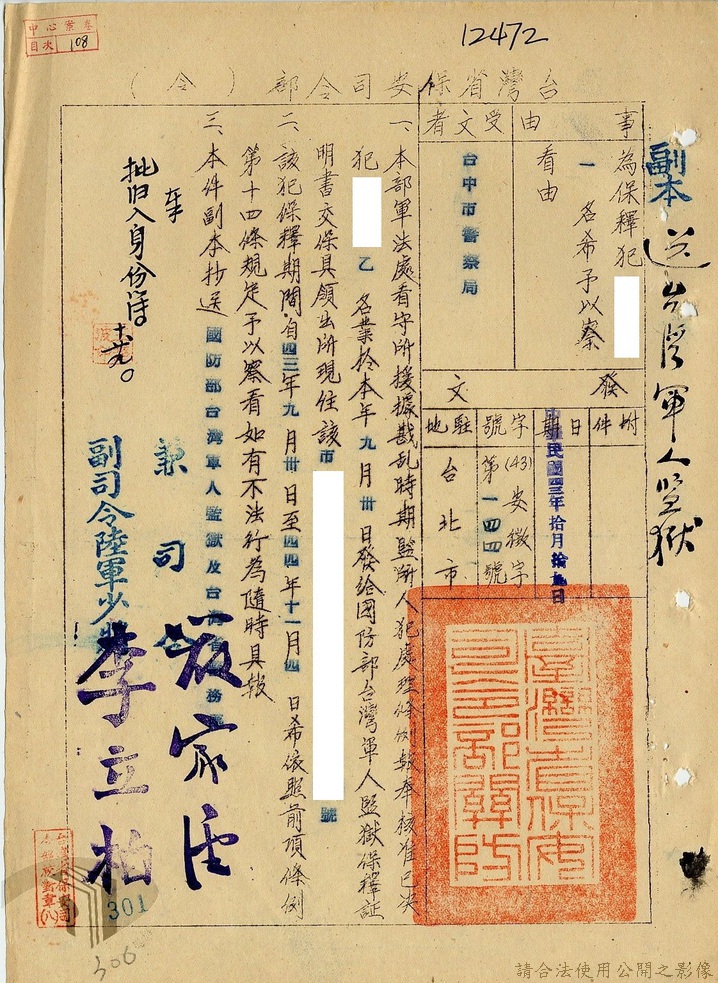 中心業務
目次 108
12472
台灣省保安司令部（令）
副本
送台灣軍人監獄
事由
為保釋犯
一名希予以察
看由
受文者
台中市警察局
發文
附件
日期
民國四三年拾月拾
日
字號
(43)安徵字
第一四四號
駐地
台北市
一、本部軍法處看守所援據戡乱時期監所人犯處理條例報奉核准已决
犯
乙名業於本年九月卅日發給國防部台灣軍人監獄保釋証
明書交保具領出所現住該市
號
二、該犯保釋期間自四三年九月卅日至四四年十一月四日希依照前項條例
第十四條規定予以察看如有不法行為隨時具報
三、本件副本抄送國防部台灣軍人監獄及台灣省
務
兼司令
嚴家淦
副司令陸軍少將
李立柏
批归入身份簿。
台灣省保安司令部關防
301
306
請合法使用公開之影像